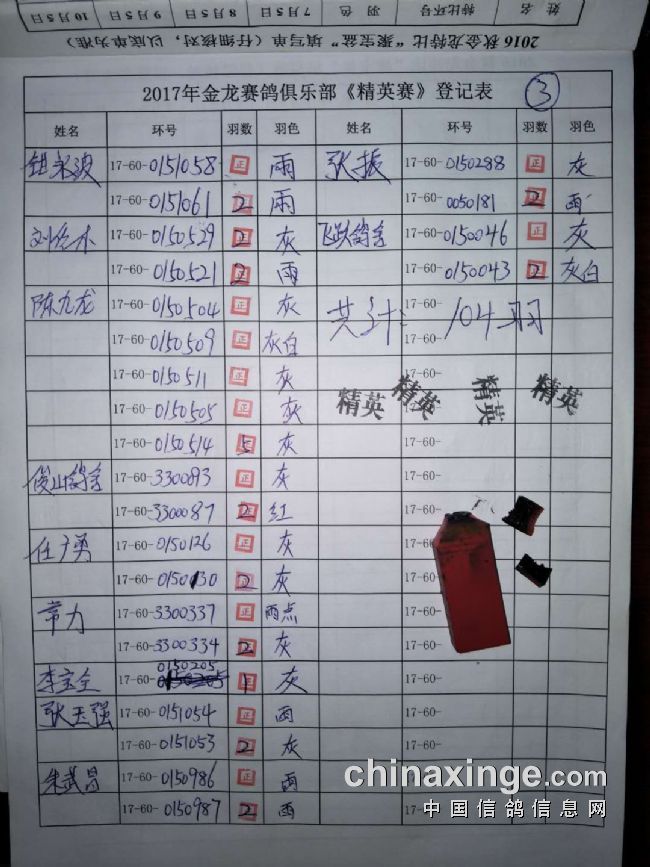 姓 名 特比环号 羽 色 7月5日 8月5日 9月5日 10月5日
2016 秋金龙特比“聚宝盆”填写单（仔细核对，以底单为准）
2017年金龙赛鸽俱乐部《精英赛》登记表 3
姓名 环号 羽数 羽色 姓名 环号 羽数 羽色
17-60-0151058 正 雨 张振 17-60-0150288 正 灰
17-60-0151061 2 雨 17-60-0050181 2 雨
17-60-0150529 2 灰 飞跃鸽舍 17-60-0150046 正 灰
17-60-0150521 2 雨 17-60-0150043 2 灰白
陈九龙 17-60-0150504 正 灰 17-60-
共计: 104羽
17-60-0150509 正 灰白 17-60-
17-60-0150511 正 灰 17-60-
17-60-0150505 正 灰 17-60-
精英 精英 精英 精英
17-60-0150514 5 灰 17-60-
俊山鸽舍 17-60-3300893 正 灰 17-60-
17-60-3300087 2 红 17-60-
任广勇 17-60-0150126 正 灰 17-60-
17-60-0150130 2 灰 17-60-
常力 17-60-3300337 正 雨点 17-60-
17-60-3300334 2 灰 17-60-
李宝全 17-60-0150205 1 灰 17-60-
张玉强 17-60-0151054 正 雨 17-60-
17-60-0151053 2 灰 17-60-
朱武昌 17-60-0150986 正 雨
17-60-0150987 2 雨 17-60-
chinaxinge.com
中国信鸽信息网